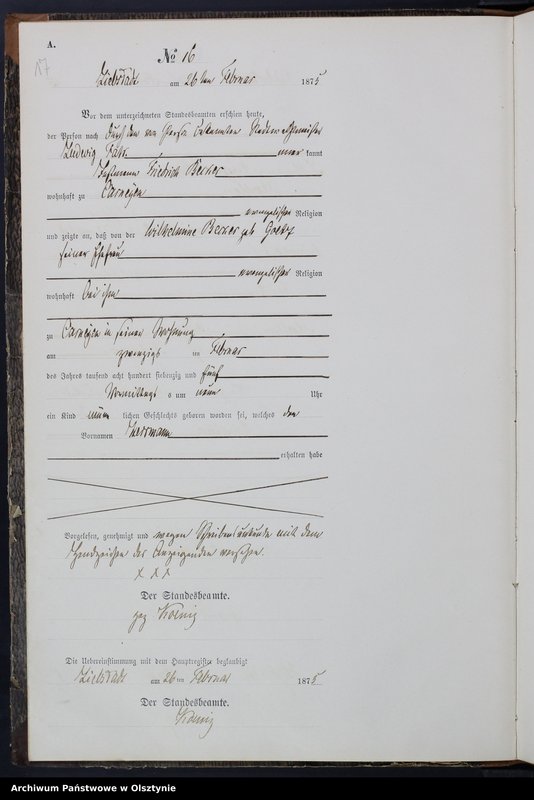 A.
17
№ 16
Liebstadt am 26ten Februar 1875
Vor dem unterzeichneten Standesbeamten erschien heute,
der Person nach durch den von Person bekannten
Ludwig kannt
Friedrich Becker
wohnhaft zu
evangelischer Religion
und zeigte an, daß von der Wilhelmine Becker geb Goetz
seiner Ehefrau
evangelischer Religion
wohnhaft bei ihm
zu in seiner Wohnung
am zwanzigsten Februar
des Jahres tausend acht hundert siebenzig und fünf
Vormittags um neun Uhr
ein Kind männlichen Geschlechts geboren worden sei, welches den
Vornamen Herrmann
erhalten habe
Vorgelesen, genehmigt und wegen Schreibensunkunde mit dem
Handzeichen des Anzeigenden versehen.
x x x
Der Standesbeamte.
gez Koenig
Die Uebereinstimmung mit dem Hauptregister beglaubigt
Liebstadt am 26ten Februar 1875
Der Standesbeamte.
Koenig
Archiwum Państwowe w Olsztynie